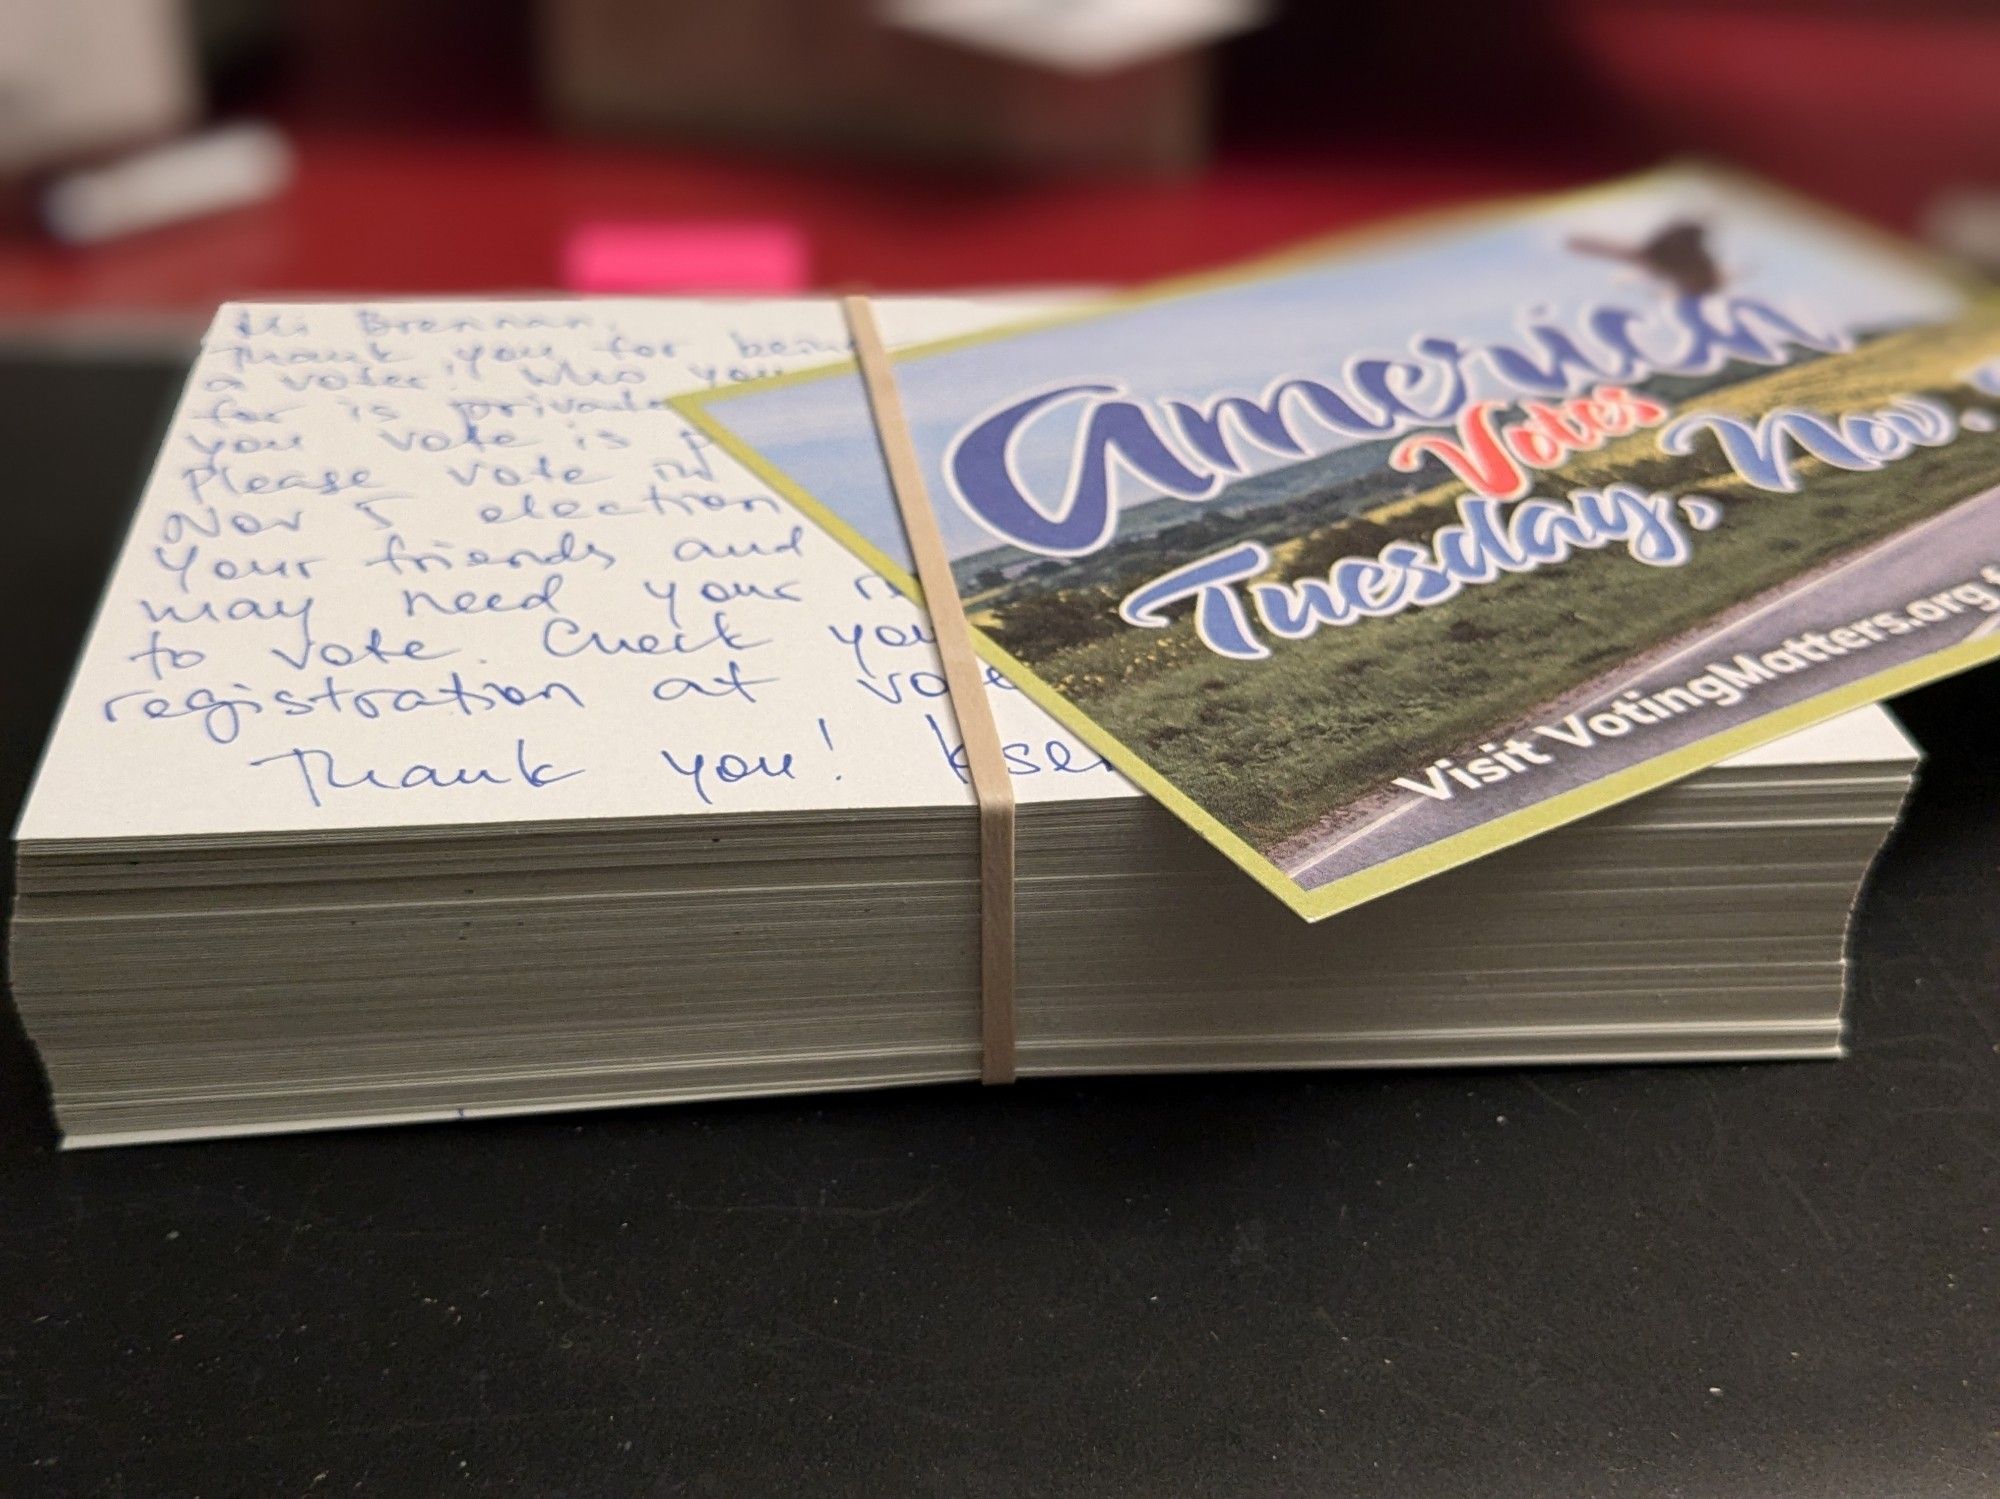 Hi Brennan,
Thank you for being
a voter! Who you
for is private
you vote is p
Please vote in
Nov 5 election
Your friends and
may need your r
to vote. Check you
registration at vote
Thank you! Kse
America
Votes
Tuesday, Nov.
Visit VotingMatters.org f